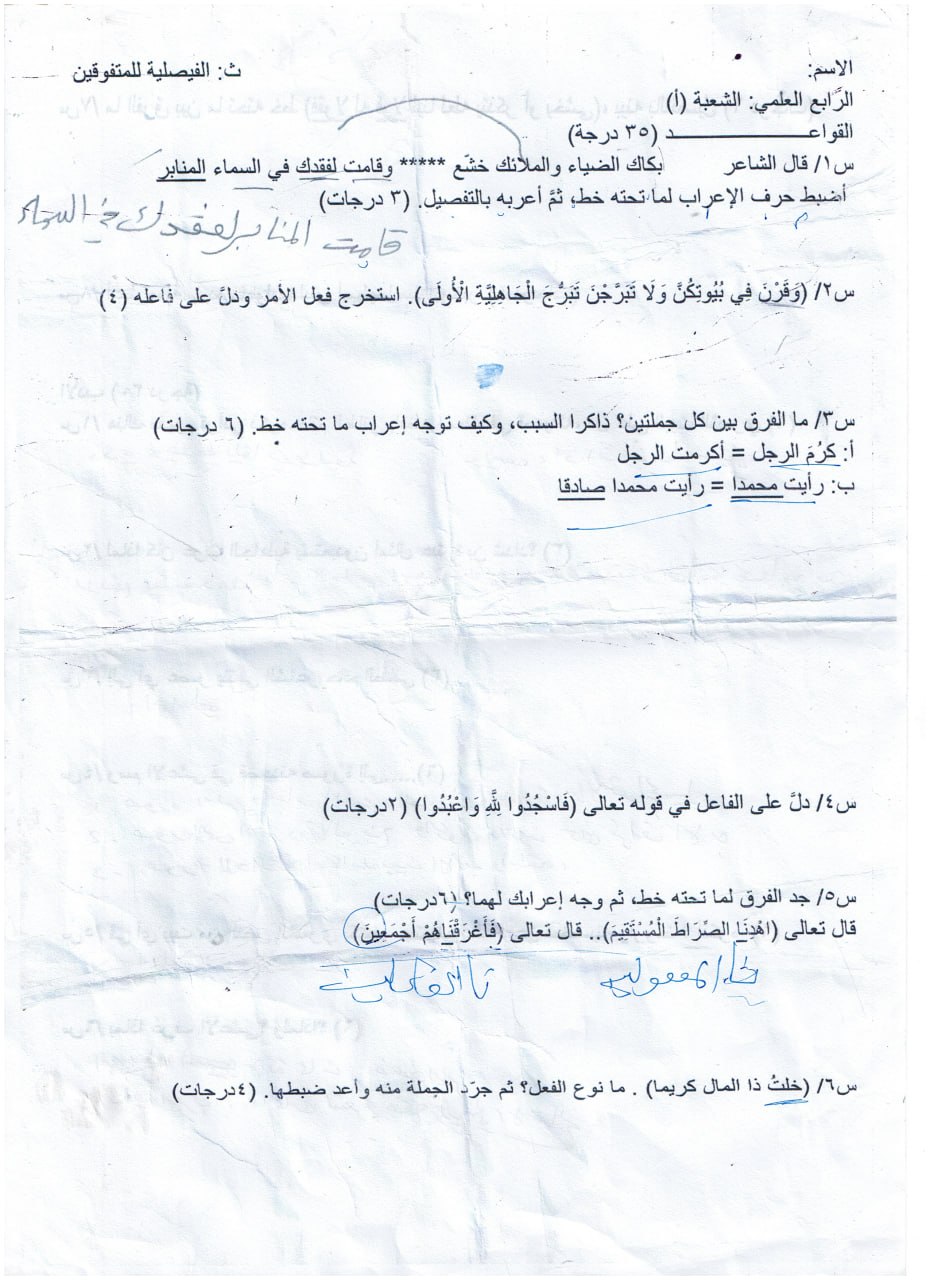 الاسم: ث: الفيصلية للمتفوقين
الرّابع العلمي: الشعبة (أ)
القواعـــــــــــــــــد (٣٥ درجة)
س١/ قال الشاعر بكاك الضياء والملائك خشّع ***** وقامت لفقدك في السماء المنابر
أضبط حرف الإعراب لما تحته خط، ثمَّ أعربه بالتفصيل. (٣ درجات)
قامت المنابر لفقدك في السماء
س٢/ (وَقَرْنَ فِي بُيُوتِكُنَّ وَلَا تَبَرَّجْنَ تَبَرُّجَ الْجَاهِلِيَّةِ الْأُولَى). استخرج فعل الأمر ودلَّ على فاعله (٤)
س٣/ ما الفرق بين كل جملتين؟ ذاكرا السبب، وكيف توجه إعراب ما تحته خط. (٦ درجات)
أ: كَرُمَ الرجل = أكرمت الرجل
ب: رأيت محمدا = رأيت محمدا صادقا
س٤/ دلَّ على الفاعل في قوله تعالى (فَاسْجُدُوا لِلَّهِ وَاعْبُدُوا) (٢درجات)
س٥/ جد الفرق لما تحته خط، ثم وجه إعرابك لهما؟ (٦درجات)
قال تعالى (اهْدِنَا الصِّرَاطَ الْمُسْتَقِيمَ).. قال تعالى (فَأَغْرَقْنَاهُمْ أَجْمَعِينَ)
نا المفعولية نا الفاعلين
س٦/ (خلتُ ذا المال كريما) . ما نوع الفعل؟ ثم جرّد الجملة منه وأعد ضبطها. (٤درجات)